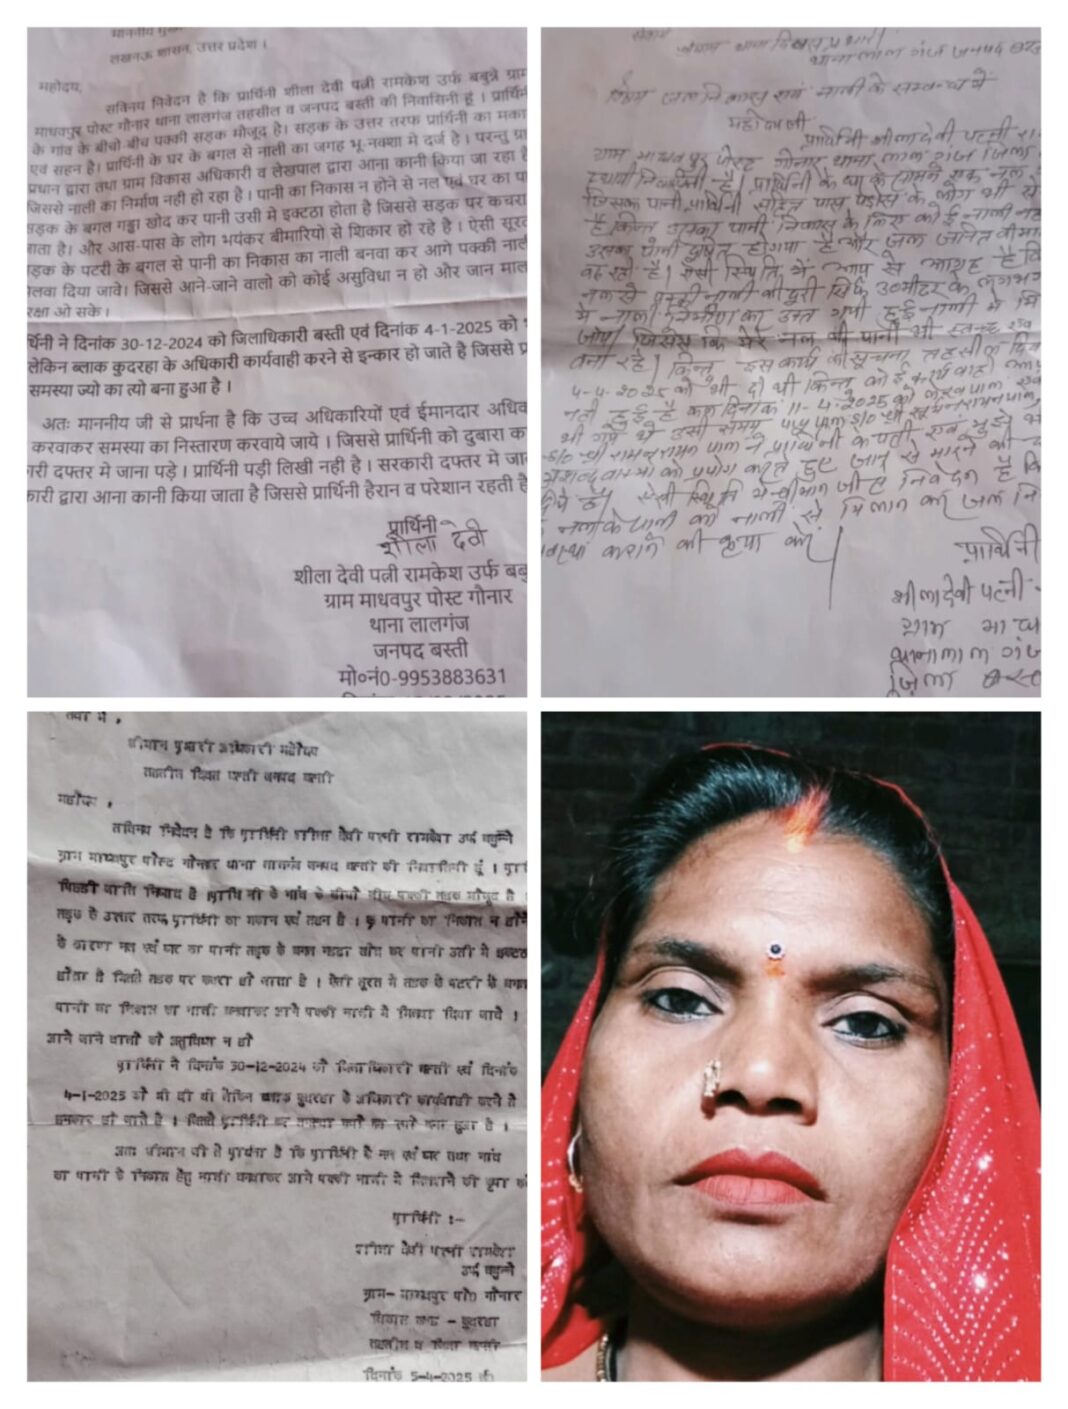 माननीय मुख्
लखनऊ शासन, उत्तर प्रदेश ।
महोदय,
सविनय निवेदन है कि प्रार्थिनी शीला देवी पत्नी रामकेश उर्फ बबुन्ने ग्राम
माधवपुर पोस्ट गौनार थाना लालगंज तहसील व जनपद बस्ती की निवासिनी हूं । प्रार्थिन
के गांव के बीचो बीच पक्की सड़क मौजूद है। सड़क के उत्तर तरफ प्रार्थिनी का मका
एवं सहन है। प्रार्थिनी के घर के बगल से नाली का जगह भू-नक्शा मे दर्ज है। परन्तु ग्रा
प्रधान द्वारा तथा ग्राम विकास अधिकारी व लेखपाल द्वारा आना कानी किया जा रहा है
जिससे नाली का निर्माण नही हो रहा है। पानी का निकास न होने से नल एवं घर का पा
सड़क के बगल गड्ढा खोद कर पानी उसी मे इक्टठा होता है जिससे सड़क पर कचरा
जाता है। और आस-पास के लोग भयंकर बीमारियो से शिकार हो रहे है। ऐसी सूरत
सड़क के पटरी के बगल से पानी का निकास का नाली बनवा कर आगे पक्की नाल
लवा दिया जावे। जिससे आने-जाने वालो को कोई असुविधा न हो और जान माल
रक्षा ओ सके।
र्थिनी ने दिनांक 30-12-2024 को जिलाधिकारी बस्ती एवं दिनांक 4-1-2025 को
लेकिन ब्लाक कुदरहा के अधिकारी कार्यवाही करने से इन्कार हो जाते है जिससे प्र
समस्या ज्यो का त्यो बना हुआ है ।
अतः माननीय जी से प्रार्थना है कि उच्च अधिकारियों एवं ईमानदार अधिक
करवाकर समस्या का निस्तारण करवाये जाये । जिससे प्रार्थिनी को दुबारा क
री दफ्तर मे जाना पड़े । प्रार्थिनी पड़ी लिखी नही है । सरकारी दफ्तर मे जा
कारी द्वारा आना कानी किया जाता है जिससे प्रार्थिनी हैरान व परेशान रहती है
प्रार्थिनी
शीला देवी
शीला देवी पत्नी रामकेश उर्फ बबु
ग्राम माधवपुर पोस्ट गौनार
थाना लालगंज
जनपद बस्ती
मो०नं0-9953883631
थाना लाल गंज जनपद
विषय जल निकास एवं नाली के सम्बन्ध में
महोदय जी
प्रार्थिनी शीला देवी पत्नी रा
ग्राम माधवपुर पोस्ट गौनार थाना लाल गंज जिला
स्थायी निवासिनी है। प्रार्थिनी के घर के सामने एक नल
जिसका पानी प्रार्थिनी सहित पास पड़ोस के लोग भी
है किन्तु उसका पानी निकास के लिए कोई नाली नह
उसका पानी दूषित होगया है और जल जनित बीमा
रहे है। ऐसी स्थिति में आप से आग्रह है कि
नल से पक्की नाली की दूरी सिर्फ 30 मीटर के लगभग
जिससे कि मेरे नल का पानी भी स्वच्छ एवं
बना रहे। किन्तु इस कार्य की सूचना तहसील दिव
4-4-2025 को भी दी थी किन्तु कोई कार्यवाही
नही हुई है कल दिनांक 11-4-2025 को लेखपाल एवं
भी गये थे उसी समय पप्पू पाल S/O श्री
S/O श्री राम नरायन पाल ने प्रार्थिनी के पती एवं मुझे
का प्रयोग करते हुए जान से मारने की
दिये है। ऐसी स्थिति में श्रीमान जी से निवेदन है कि
नल के पानी को नाली से मिलान कर जल नि
कराने की कृपा करें।
प्रार्थिनी
शीला देवी पत्नी
ग्राम माध
थाना लाल गंज
जिला बस्त
सेवा में ,
श्रीमान प्रभारी अधिकारी महोदय
तहसील दिवस बस्ती जनपद बस्ती
महोदय ,
सविनय निवेदन है कि प्रार्थिनी शीला देवी पत्नी रामकेश उर्फ बबुन्ने
ग्राम माधवपुर पोस्ट गौनार थाना लालगंज जनपद बस्ती की निवासिनी हूं । प्रा
पिछड़ी जाति निषाद है प्रार्थिनी के गांव के बीचो बीच पक्की सड़क मौजूद है ।
सड़क के उत्तर तरफ प्रार्थिनी का मकान एवं सहन है । पानी का निकास न होने
के कारण नल एवं घर का पानी सड़क के बगल गड्ढा खोद कर पानी उसी मे इकट्ठ
होता है जिससे सड़क पर कचरा हो जाता है । ऐसी सूरत मे सड़क के पटरी के बगल
पानी का निकास का नाली बनवाकर आगे पक्की नाली मे मिलवा दिया जावे ।
आने जाने वालो को असुविधा न हो
प्रार्थिनी ने दिनांक 30-12-2024 को जिलाधिकारी बस्ती एवं दिनांक
4-1-2025 को भी दी थी लेकिन ब्लाक कुदरहा के अधिकारी कार्यवाही करने से
इनकार हो जाते है । जिससे प्रार्थिनी का समस्या ज्यों का त्यों बना हुआ है ।
अतः श्रीमान जी से प्रार्थना है कि प्रार्थिनी के नल एवं घर तथा गांव
का पानी के निकास हेतु नाली बनवाकर आगे पक्की नाली मे मिलाने की कृपा क
प्रार्थिनी :-
शीला देवी पत्नी रामकेश
उर्फ बबुन्ने
ग्राम- माधवपुर पो0 गौनार
विकास खण्ड - कुदरहा
तहसील व जिला बस्ती
दिनांक 5-4-2025 ई0